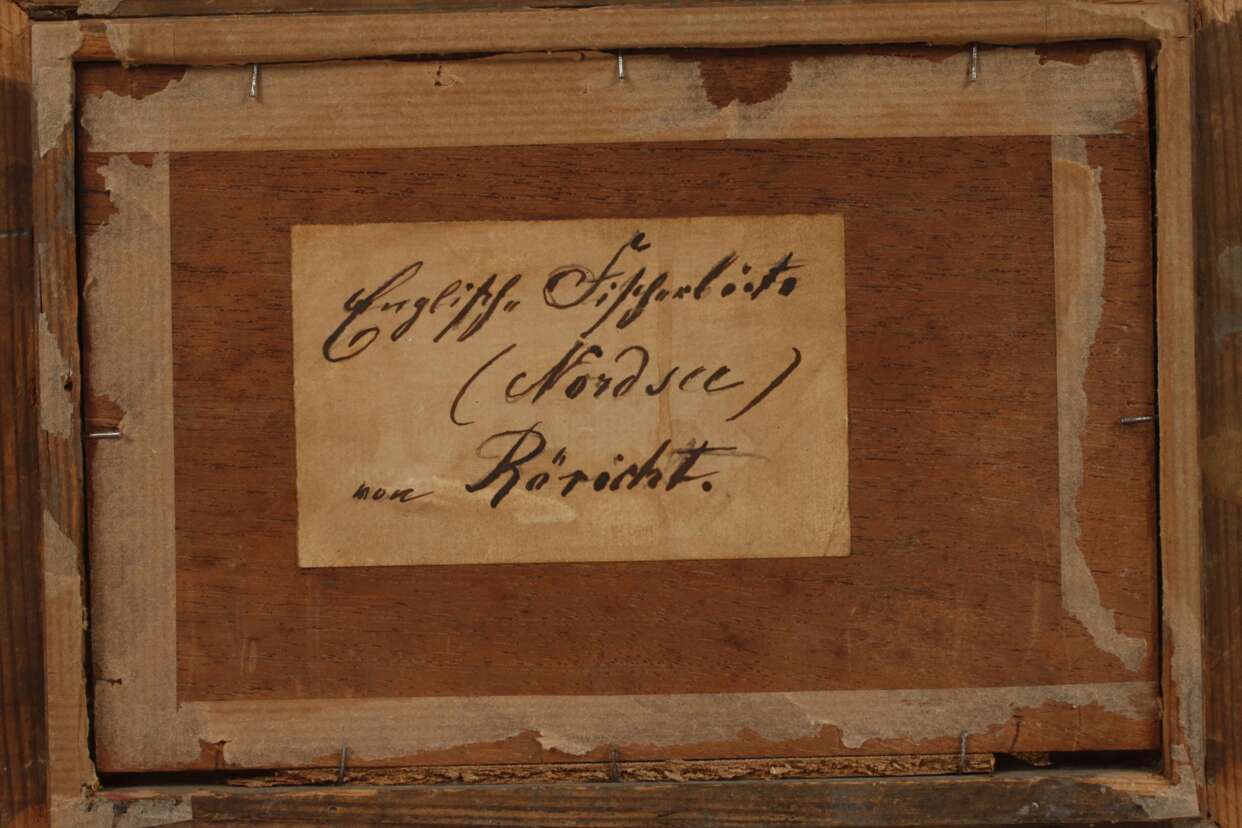 Englische Fischerböte
(Nordsee)
von Röricht.